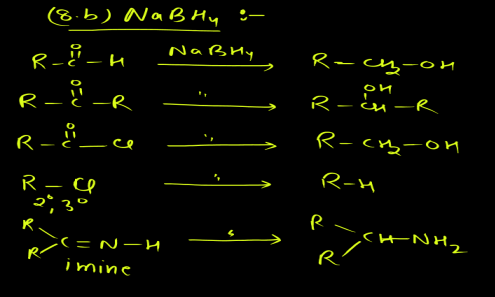 (8.b) NaBH4 :-
R-C(=O)-H NaBH4 → R-CH2-OH
R-C(=O)-R " → R-CH(OH)-R
R-C(=O)-Cl " → R-CH2-OH
R-Cl " → R-H
2°, 3°
R R C=N-H " → R R CH-NH2
imine